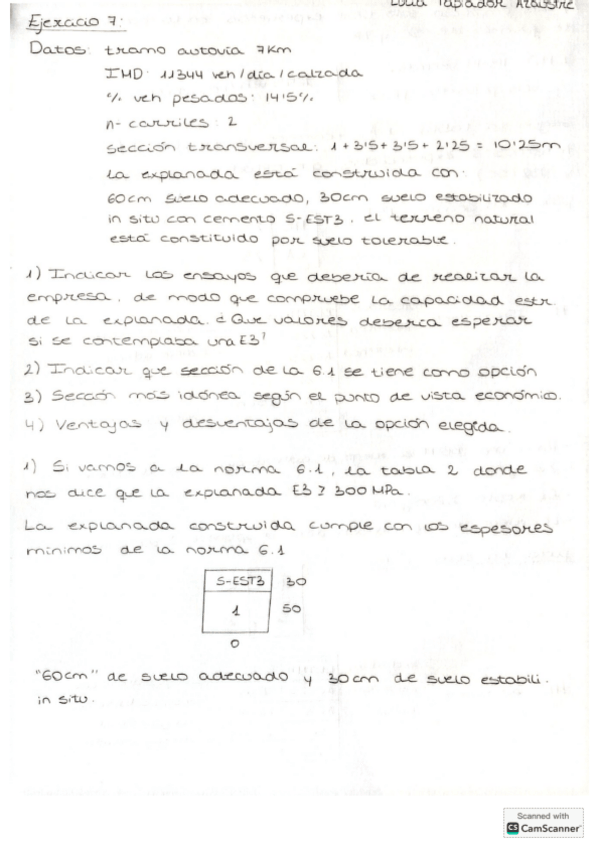 Lucía Tapiador
Ejercicio 7:
Datos: tramo autovía 7Km
IMD: 11344 veh/día/calzada
% veh pesados: 14'5%
n- carriles: 2
sección transversal: 1+3'5+3'5+2'25 = 10'25m
La explanada está construida con:
60cm suelo adecuado, 30cm suelo estabilizado
in situ con cemento S-EST3. el terreno natural
está constituido por suelo tolerable.
1) Indicar los ensayos que debería de realizar la
empresa, de modo que compruebe la capacidad estr
de la explanada. ¿Que valores debería esperar
si se contemplaba una E3?
2) Indicar que sección de la 6.1 se tiene como opción
3) Sección más idónea según el punto de vista económico.
4) Ventajas y desventajas de la opción elegida.
1) Si vamos a la norma 6.1, la tabla 2 donde
nos dice que la explanada E3 ≥ 300 MPa.
La explanada construida cumple con los espesores
mínimos de la norma 6.1
S-EST3 30
1 50
0
"60cm" de suelo adecuado y 30cm de suelo estabili.
in situ.
Scanned with
CS CamScanner